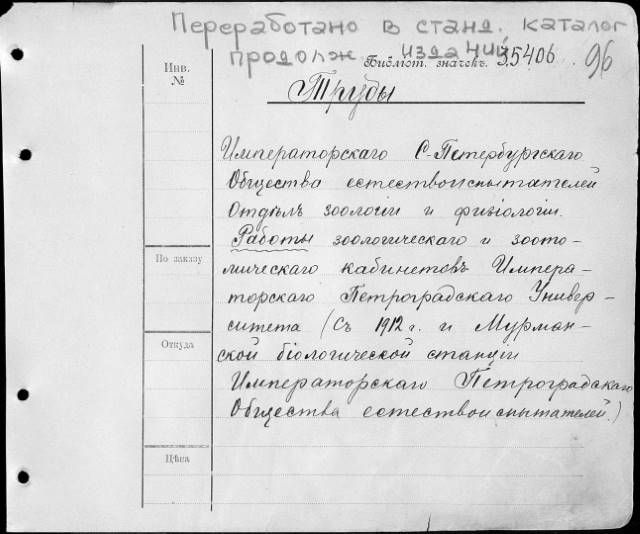 Переработано в станд. каталог
продолж. изданий
Инв.
№
Библіот. значекъ. 35406. 96
Труды
Императорскаго С-Петербургскаго
Общества естествоиспытателей
Отдѣлъ зоологіи и физіологіи.
Работы зоологическаго и зоото-
мическаго кабинетовъ Импера-
По заказу
торскаго Петроградскаго Универ-
ситета (Съ 1912 г. и Мурман-
Откуда
ской біологической станціи
Императорскаго Петроградскаго
Общества естествоиспытателей.)
Цѣна